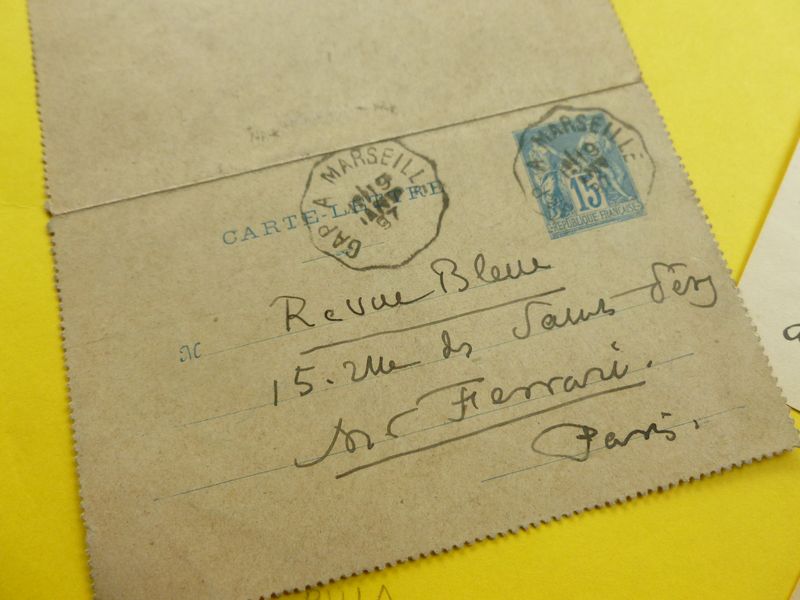 GAP A MARSEILLE
19
JANV
97
A MARSEILLE
19
15
RÉPUBLIQUE FRANÇAISE
CARTE-LETTRE
M
Revue Bleue
15. rue des Saints Pères
Mr Ferrari.
Paris.